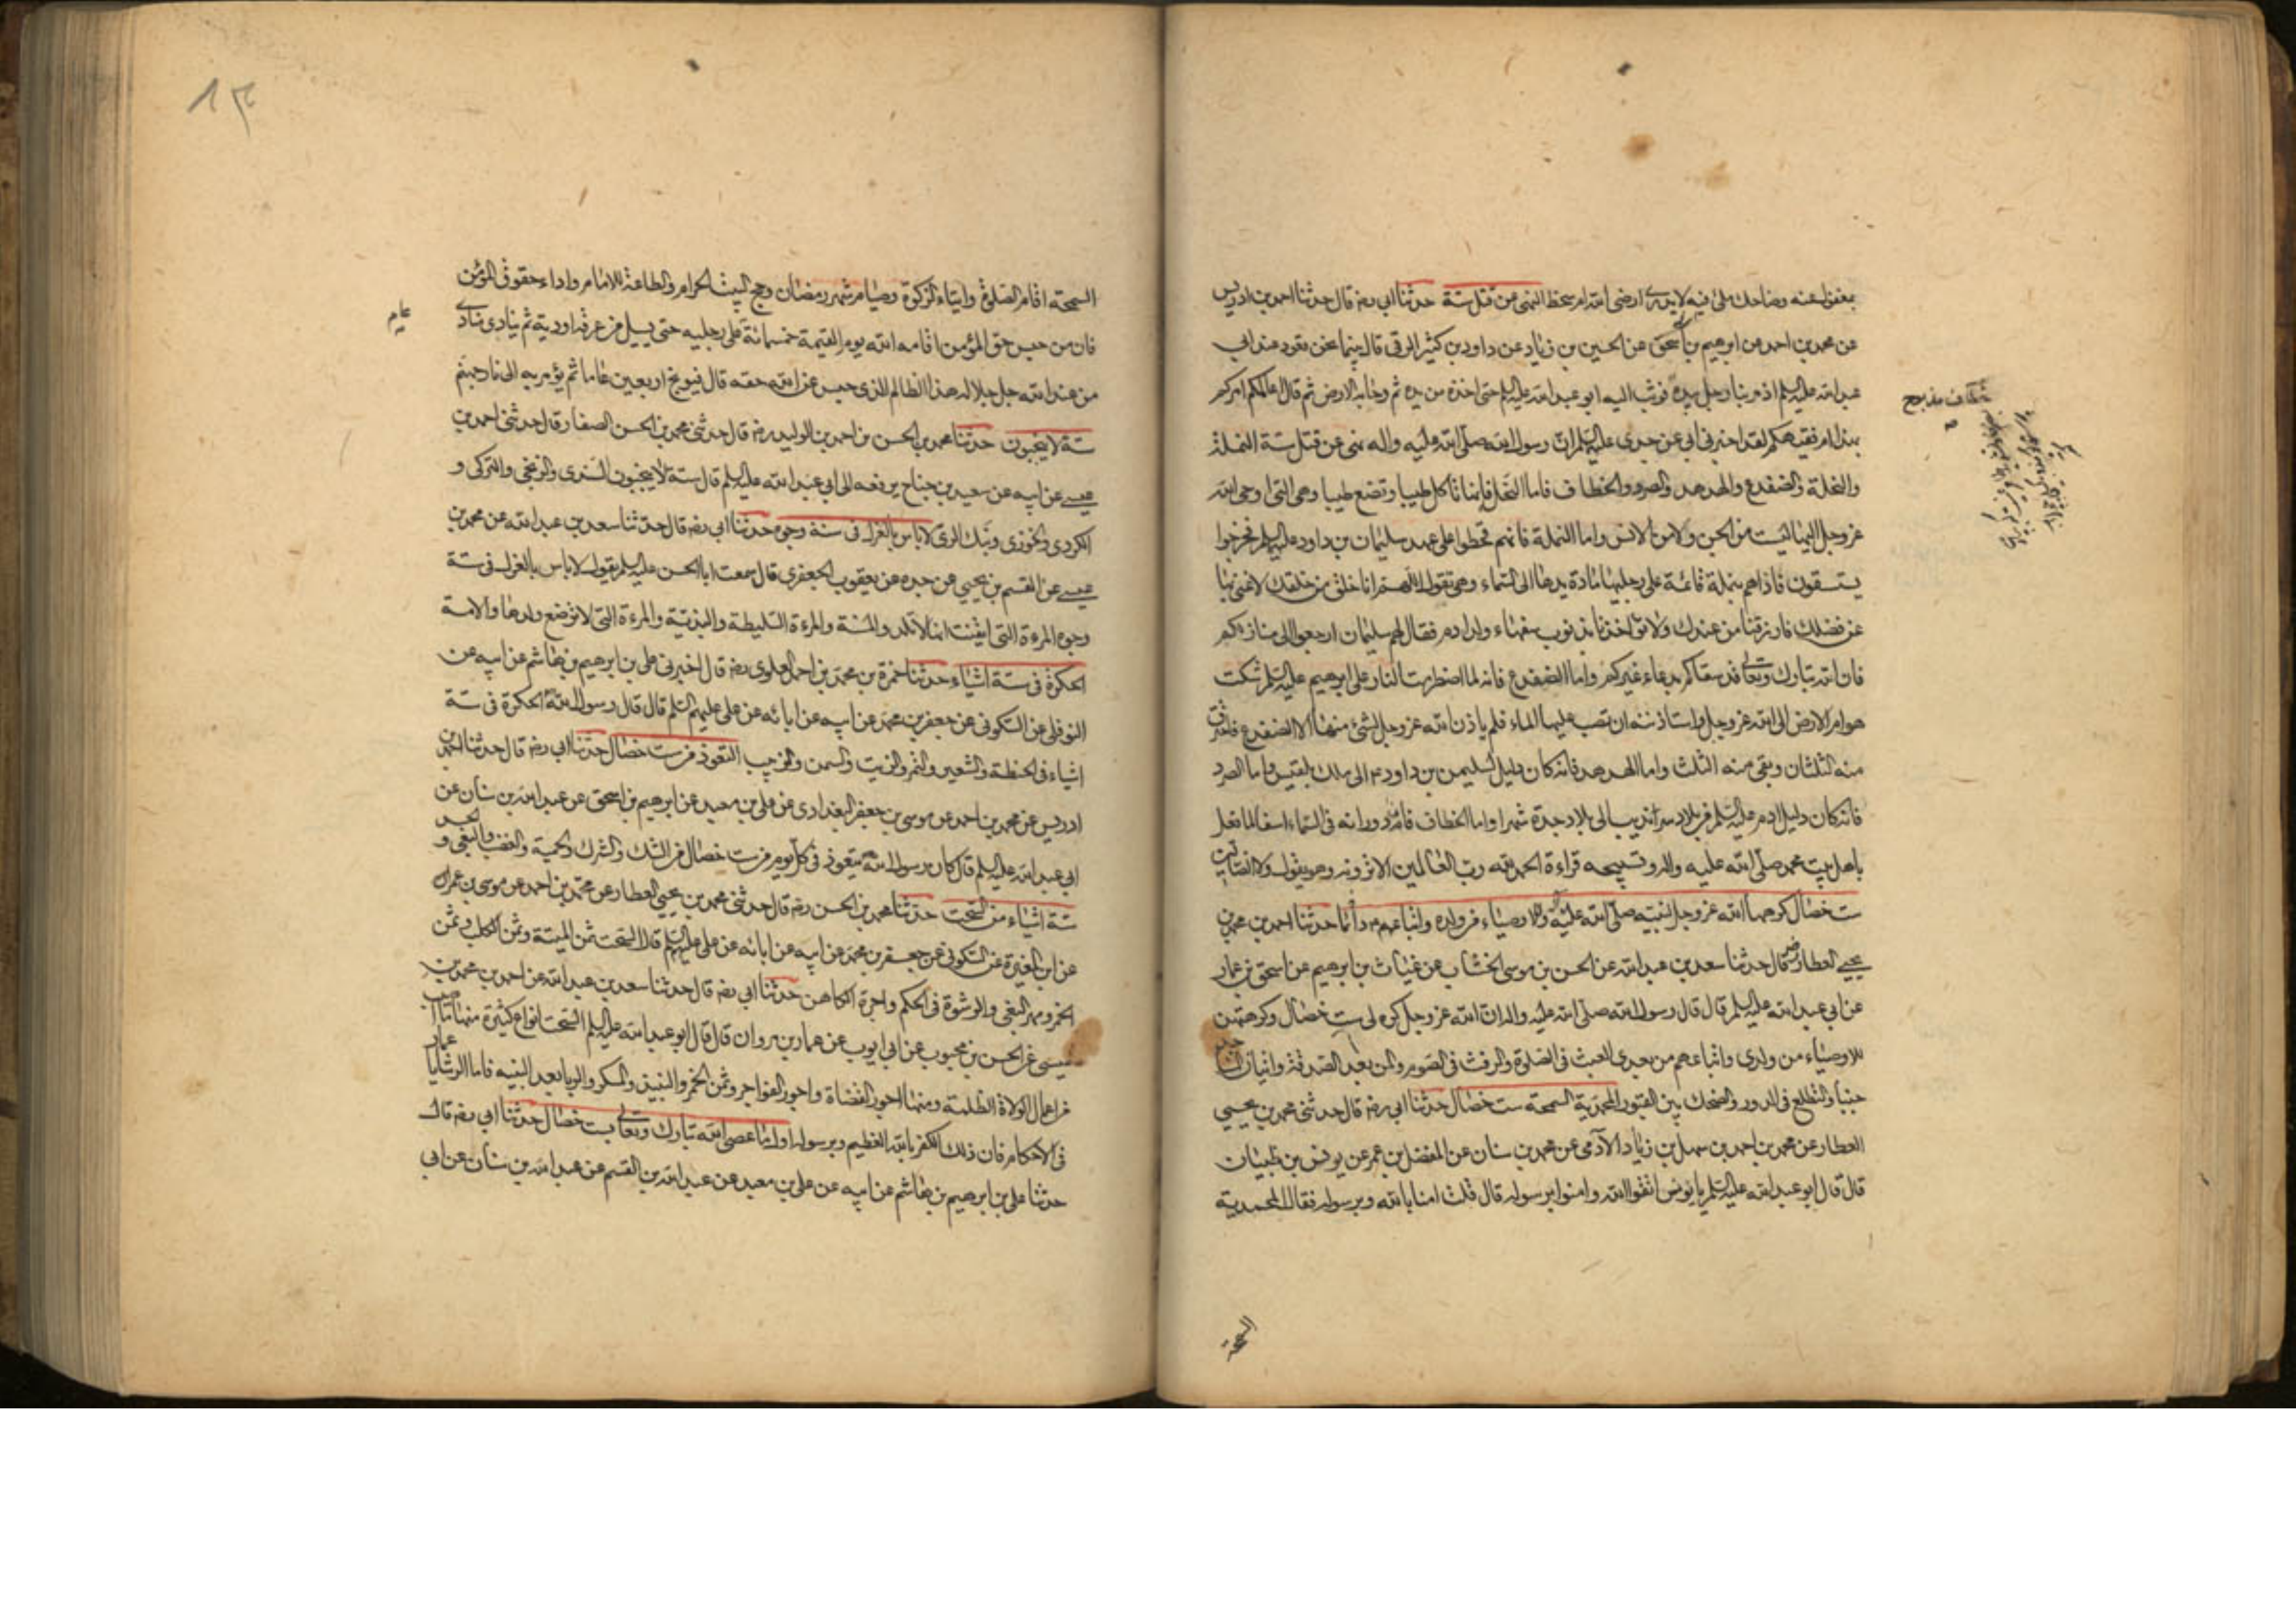 بمغفور عنه وضاحك ملئ فيه لا يدري ارضى الله ام سخط النهى عن قتل ستة حدثنا ابي رضه قال حدثنا احمد بن ادريس
عن محمد بن احمد عن ابرهيم بن اسحق عن الحسين بن زياد عن داود بن كثير الرقى قال بينما نحن قعود عند ابي
عبد الله عليه السلم اذ مر بنا رجل بيده فوثب اليه ابو عبد الله عليه السلم حتى اخذه من يده ثم دحا به الارض ثم قال اعالمكم امركم
بهذا ام فقيهكم لقد اخبرني ابي عن جدى عليه السلم ان رسول الله صلى الله عليه واله نهى عن قتل ستة النملة
والنحلة والضفدع والهدهد والصرد والخطاف فاما النحل فانها تاكل طيبا وتضع طيبا وهى التى اوحى الله
عز وجل اليها ليست من الجن ولا من الانس واما النملة فانهم قحطوا على عهد سليمان بن داود عليه السلم فخرجوا
يستسقون فاذا هم بنملة قائمة على رجليها مادة يدها الى السماء وهى تقول اللهم انا خلق من خلقك لا غنى بنا
عن فضلك فارزقنا من عندك ولا تؤاخذنا بذنوب سفهاء ولد ادم فقال لهم سليمان ارجعوا الى منازلكم
فان الله تبارك وتعالى قد سقاكم بدعاء غيركم واما الضفدع فانه لما اضطرمت النار على ابرهيم عليه السلم شكت
هوام الارض الى الله عز وجل واستاذنته ان تصب عليها الماء فلم ياذن الله عز وجل لشئ منها الا الضفدع فاحترق
منه الثلثان وبقى منه الثلث واما الهدهد فانه كان دليل سليمن بن داود ع الى ملك بلقيس واما الصرد
فانه كان دليل ادم عليه السلم من بلاد سرانديب الى بلاد جدة شهرا واما الخطاف فان دورانه في السماء اسفا لما فعل
باهل بيت محمد صلى الله عليه واله وتسبيحه قراءة الحمد لله رب العالمين الا ترونه وهو يقول ولا الضالين
ست خصال كرهها الله عز وجل لنبيه صلى الله عليه واله والاوصياء من ولده واتباعهم حدثنا احمد بن محمد بن
يحيى العطار رض قال حدثنا سعد بن عبد الله عن الحسن بن موسى الخشاب عن غياث بن ابرهيم عن اسحق بن عمار
عن ابي عبد الله عليه السلم قال قال رسول الله صلى الله عليه واله ان الله عز وجل كره لى ست خصال وكرهتهن
للاوصياء من ولدى واتباعهم من بعدى العبث في الصلوة والرفث في الصوم والمن بعد الصدقة واتيان المساجد
جنبا والتطلع في الدور والضحك بين القبور المحمدية السمحة ست خصال حدثنا ابي رضه قال حدثنى محمد بن يحيى
العطار عن محمد بن احمد بن سهل بن زياد الآدمى عن محمد بن سنان عن المفضل بن عمر عن يونس بن ظبيان
قال قال ابو عبد الله عليه السلم يا يونس اتقوا الله وامنوا برسوله قال قلت امنا بالله وبرسوله فقال المحمدية
السمحة
السمحة اقام الصلوة وايتاء الزكوة وصيام شهر رمضان وحج البيت الحرام والطاعة للامام واداء حقوق المؤمن
عام
فان من حبس حق المؤمن اقامه الله يوم القيمة خمسمائة على رجليه حتى يسيل من عرقه اودية ثم ينادى مناد
من عند الله جل جلاله هذا الظالم الذى حبس عن الله حقه قال فيوبخ اربعين عاما ثم يؤمر به الى نار جهنم
ستة لا ينجبون حدثنا محمد بن الحسن بن احمد بن الوليد رضه قال حدثنى محمد بن الحسن الصفار قال حدثنى احمد بن
عيسى عن ابيه عن سعيد بن جناح يرفعه الى ابي عبد الله عليه السلم قال ستة لا ينجبون السندى والزنجى والتركى و
الكردى والخوزى ونبك الرى لا باس بالعزل في ستة وجوه حدثنا ابي رضه قال حدثنا سعد بن عبد الله عن محمد بن
عيسى عن القسم بن يحيى عن جده عن يعقوب الجعفرى قال سمعت ابا الحسن عليه السلم يقول لا باس بالعزل في ستة
وجوه المرءة التى ايقنت انها لا تلد والمسنة والمرءة السليطة والبذية والمرءة التى لا ترضع ولدها والامة
الحكرة في ستة اشياء حدثنا حمزة بن محمد بن احمد العلوى رضه قال اخبرنى على بن ابرهيم بن هاشم عن ابيه عن
النوفلى عن السكونى عن جعفر بن محمد عن ابيه عن ابائه عن على عليهم السلم قال قال رسول الله الحكرة في ستة
اشياء في الحنطة والشعير والتمر والزيت والسمن والزبيب التعوذ من ست خصال حدثنا ابي رضه قال حدثنا احمد بن
ادريس عن محمد بن احمد عن موسى بن جعفر البغدادى عن على بن معبد عن ابرهيم بن اسحق عن عبد الله بن سنان عن
ابي عبد الله عليه السلم قال كان رسول الله يتعوذ في كل يوم من ست خصال من الشك والشرك والحمية والغضب والبغى و الحسد
ستة اشياء من السحت حدثنا محمد بن الحسن رضه قال حدثنى محمد بن يحيى العطار عن محمد بن احمد عن موسى بن عمر
عن ابن المغيرة عن السكونى عن جعفر بن محمد عن ابيه عن ابائه عن على عليهم السلم قال السحت ثمن الميتة وثمن الكلب وثمن
الخمر ومهر البغى والرشوة في الحكم واجرة الكاهن حدثنا ابي رضه قال حدثنا سعد بن عبد الله عن احمد بن محمد بن
عيسى عن الحسن بن محبوب عن ابي ايوب عن عمار بن مروان قال قال ابو عبد الله عليه السلم السحت انواع كثيرة منها ما اصيب
من اعمال الولاة الظلمة ومنها اجور القضاة واجور الفواجر وثمن الخمر والنبيذ والمسكر والربا بعد البينة فاما الرشا يا عمار
في الاحكام فان ذلك الكفر بالله العظيم وبرسوله اول ما عصى الله تبارك وتعالى بست خصال حدثنا ابي رضه قال
حدثنا على بن ابرهيم بن هاشم عن ابيه عن على بن معبد عن عبد الله بن القسم عن عبد الله بن سنان عن ابي